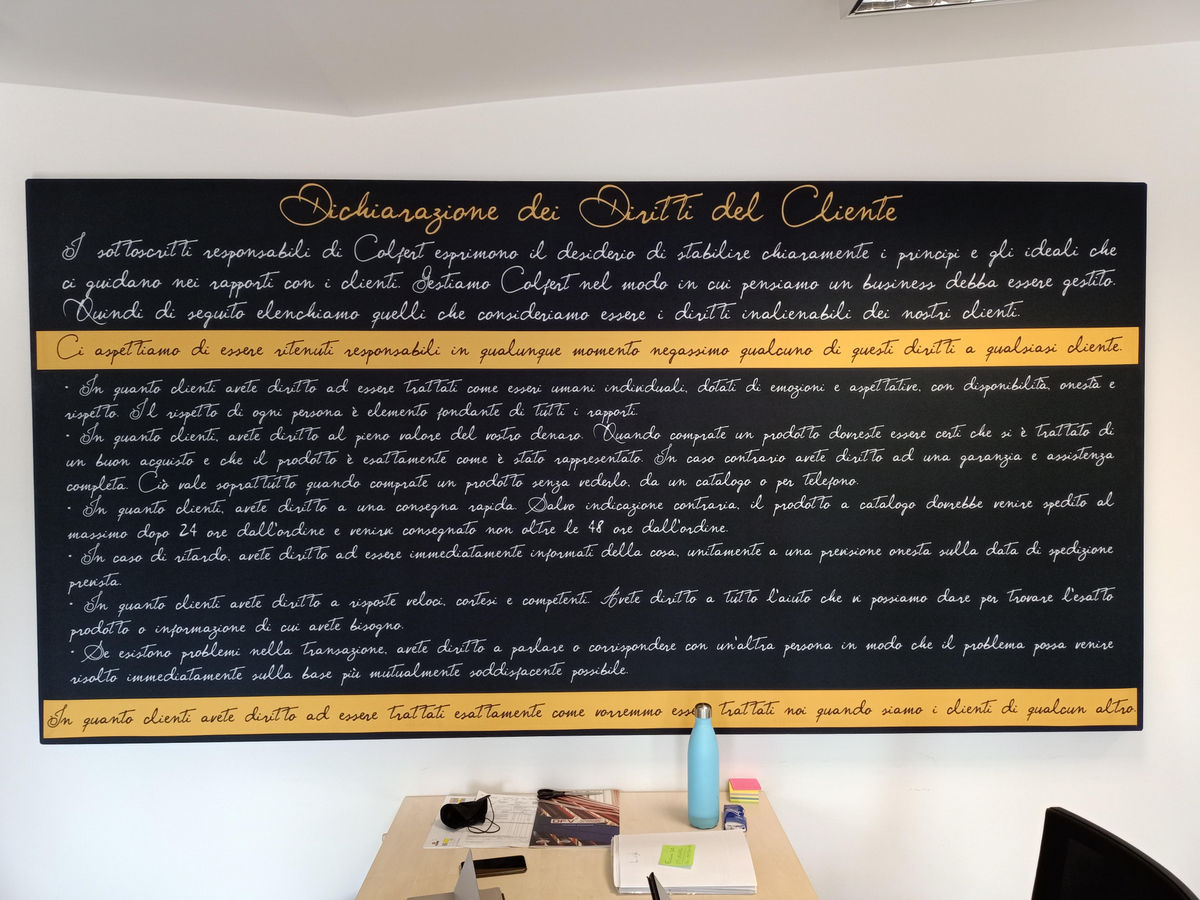 Dichiarazione dei Diritti del Cliente
I sottoscritti responsabili di Colfert esprimono il desiderio di stabilire chiaramente i principi e gli ideali che
ci guidano nei rapporti con i clienti. Gestiamo Colfert nel modo in cui pensiamo un business debba essere gestito.
Quindi di seguito elenchiamo quelli che consideriamo essere i diritti inalienabili dei nostri clienti.
Ci aspettiamo di essere ritenuti responsabili in qualunque momento negassimo qualcuno di questi diritti a qualsiasi cliente.
• In quanto clienti avete diritto ad essere trattati come esseri umani individuali, dotati di emozioni e aspettative, con disponibilità, onestà e
rispetto. Il rispetto di ogni persona è elemento fondante di tutti i rapporti.
• In quanto clienti, avete diritto al pieno valore del vostro denaro. Quando comprate un prodotto dovreste essere certi che si è trattato di
un buon acquisto e che il prodotto è esattamente come è stato rappresentato. In caso contrario avete diritto ad una garanzia e assistenza
completa. Ciò vale soprattutto quando comprate un prodotto senza vederlo, da un catalogo o per telefono.
• In quanto clienti, avete diritto a una consegna rapida. Salvo indicazione contraria, il prodotto a catalogo dovrebbe venire spedito al
massimo dopo 24 ore dall'ordine e venirvi consegnato non oltre le 48 ore dall'ordine.
• In caso di ritardo, avete diritto ad essere immediatamente informati della cosa, unitamente a una previsione onesta sulla data di spedizione
prevista.
• In quanto clienti avete diritto a risposte veloci, cortesi e competenti. Avete diritto a tutto l'aiuto che vi possiamo dare per trovare l'esatto
prodotto o informazione di cui avete bisogno.
• Se esistono problemi nella transazione, avete diritto a parlare o corrispondere con un'altra persona in modo che il problema possa venire
risolto immediatamente sulla base più mutualmente soddisfacente possibile.
In quanto clienti avete diritto ad essere trattati esattamente come vorremmo trattati noi quando siamo i clienti di qualcun altro.